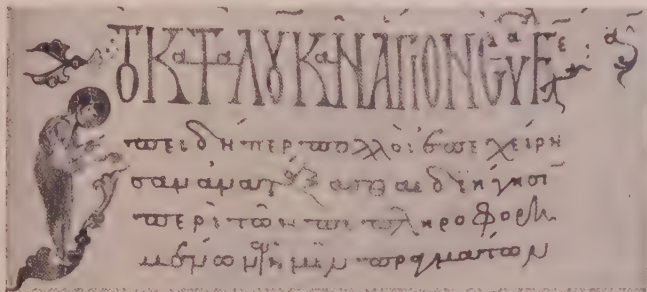 ΤΟΥ ΚΑΤΑ ΛΟΥΚΑΝ ΑΓΙΟΝ ΕΥΑ
πειδήπερ πολλοὶ ἐπεχείρη
σαν ἀνατάξασθαι διήγησι
περὶ τῶν πεπληροφορη
μένων ἐν ἡμῖν πραγμάτων